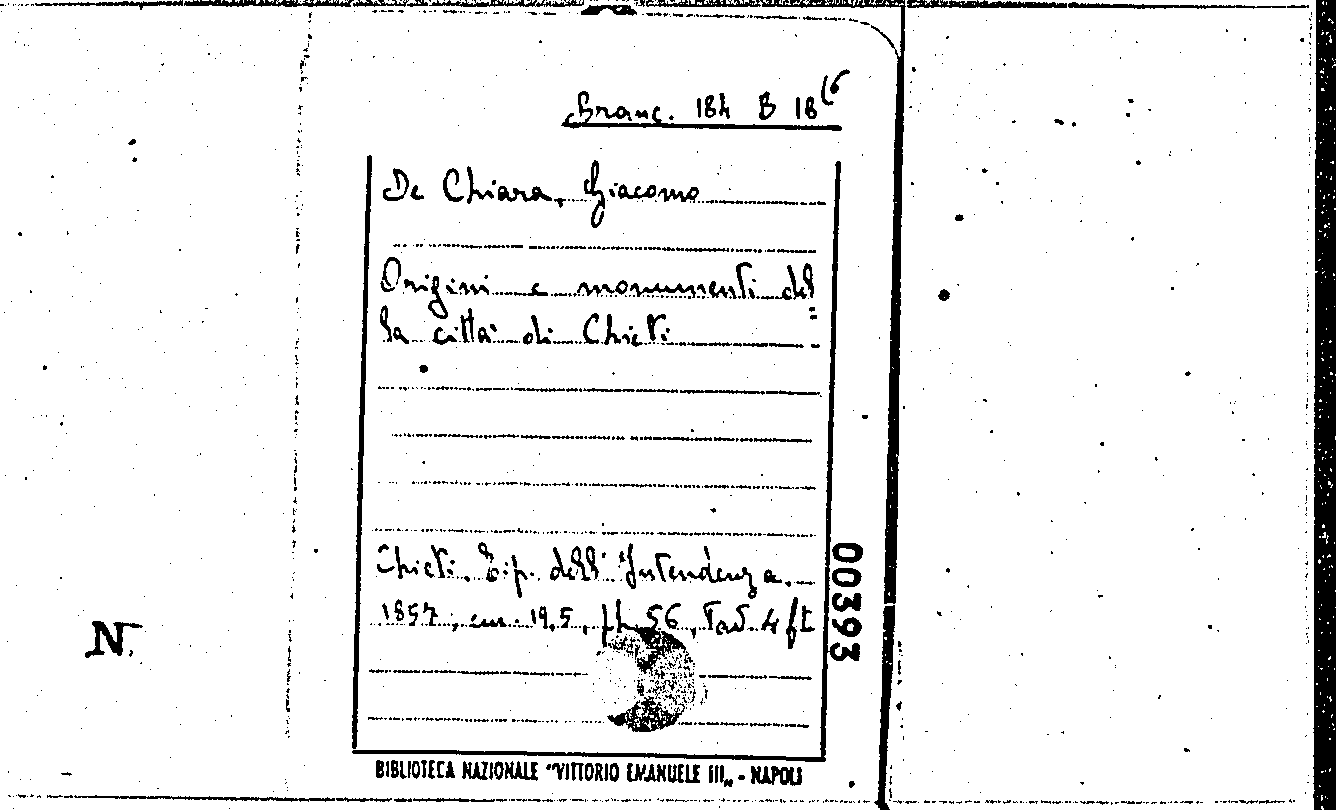 Branc. 184 B 18 (6
De Chiara, Giacomo
Origini e monumenti del=
la città di Chieti
Chieti. Tip. dell'Intendenza.
1857, cm. 19,5, pp. 56, Tav. 4 ft
00393
N.
BIBLIOTECA NAZIONALE "VITTORIO EMANUELE III„ - NAPOLI